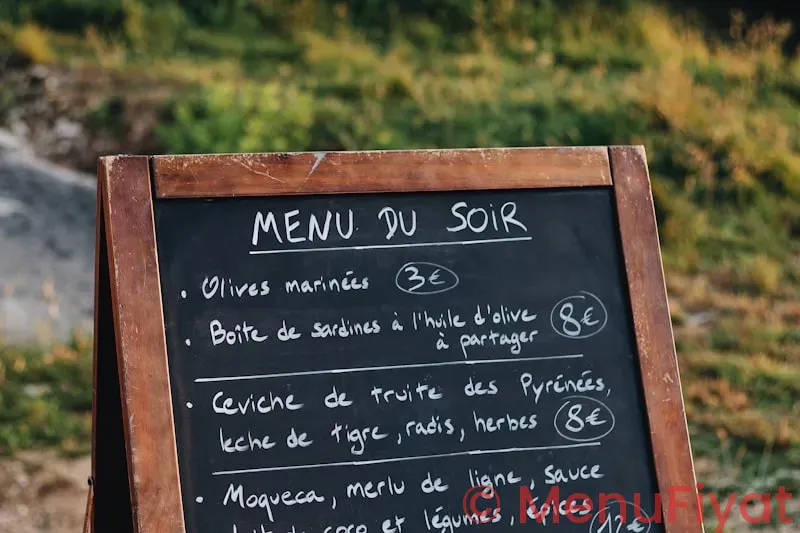 MENU DU SOIR
• Olives marinées 3€
• Boîte de sardines à l'huile d'olive
à partager 8€
• Ceviche de truite des Pyrénées,
leche de tigre, radis, herbes 8€
• Moqueca, merlu de ligne, sauce
coco et légumes, épices
© MenuFiyat